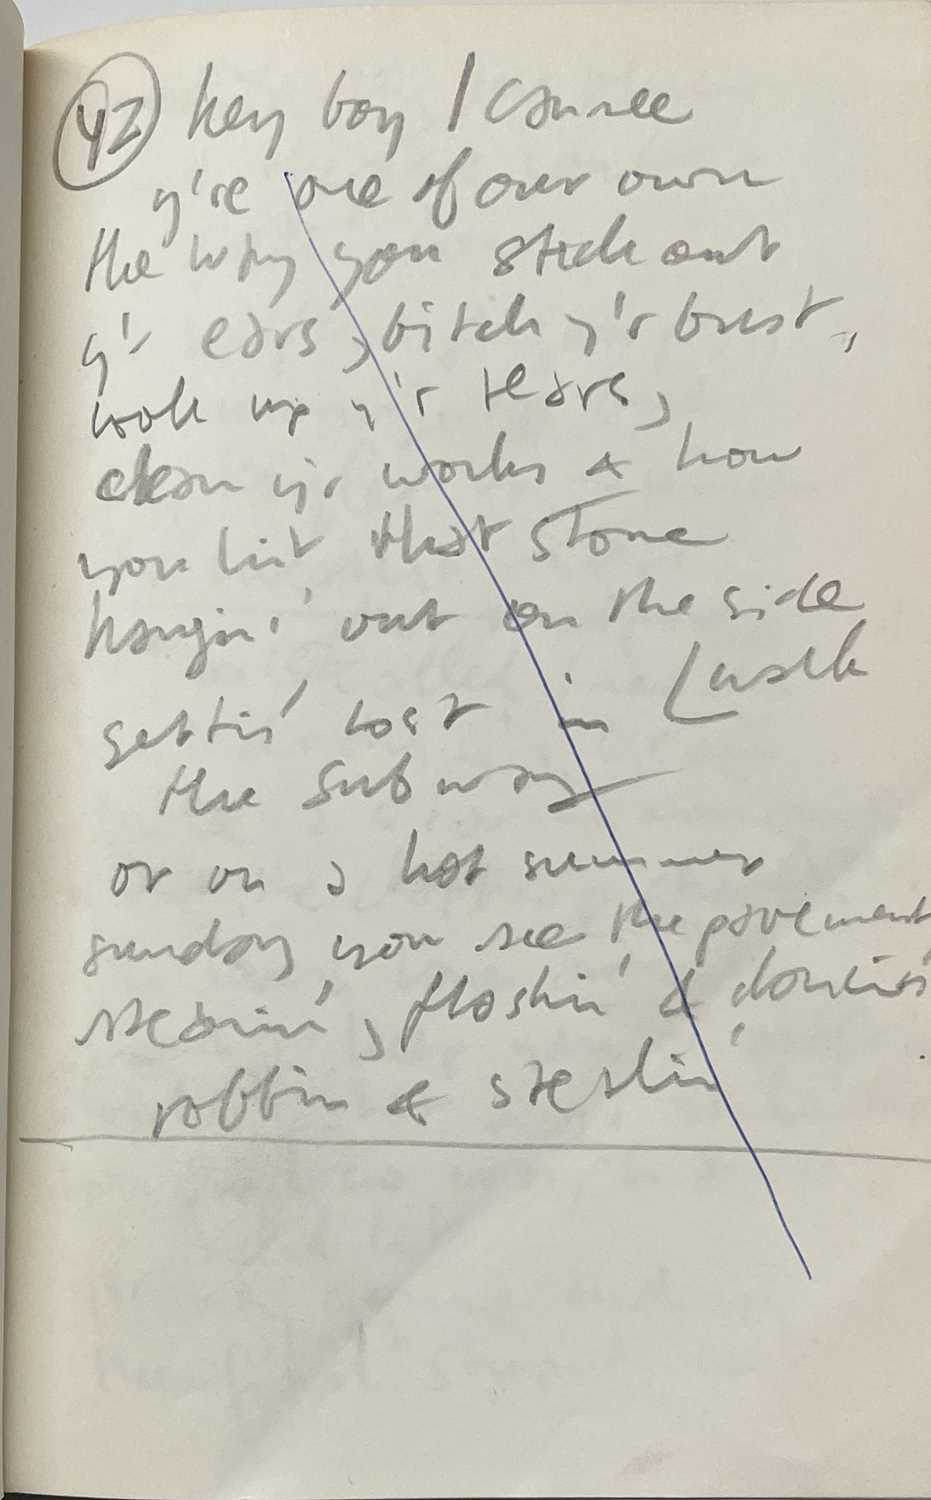 42 hey boy I can see
y're one of our own
the way you stick out
y'r ears, bitch y'r bust,
look up y'r tears,
clean y'r works & how
you hit that stone
hangin' out on the side
gettin' lost in
the subway
or on a hot summer
sunday you see the pavement
steamin', flashin' &
robbin & stealin'